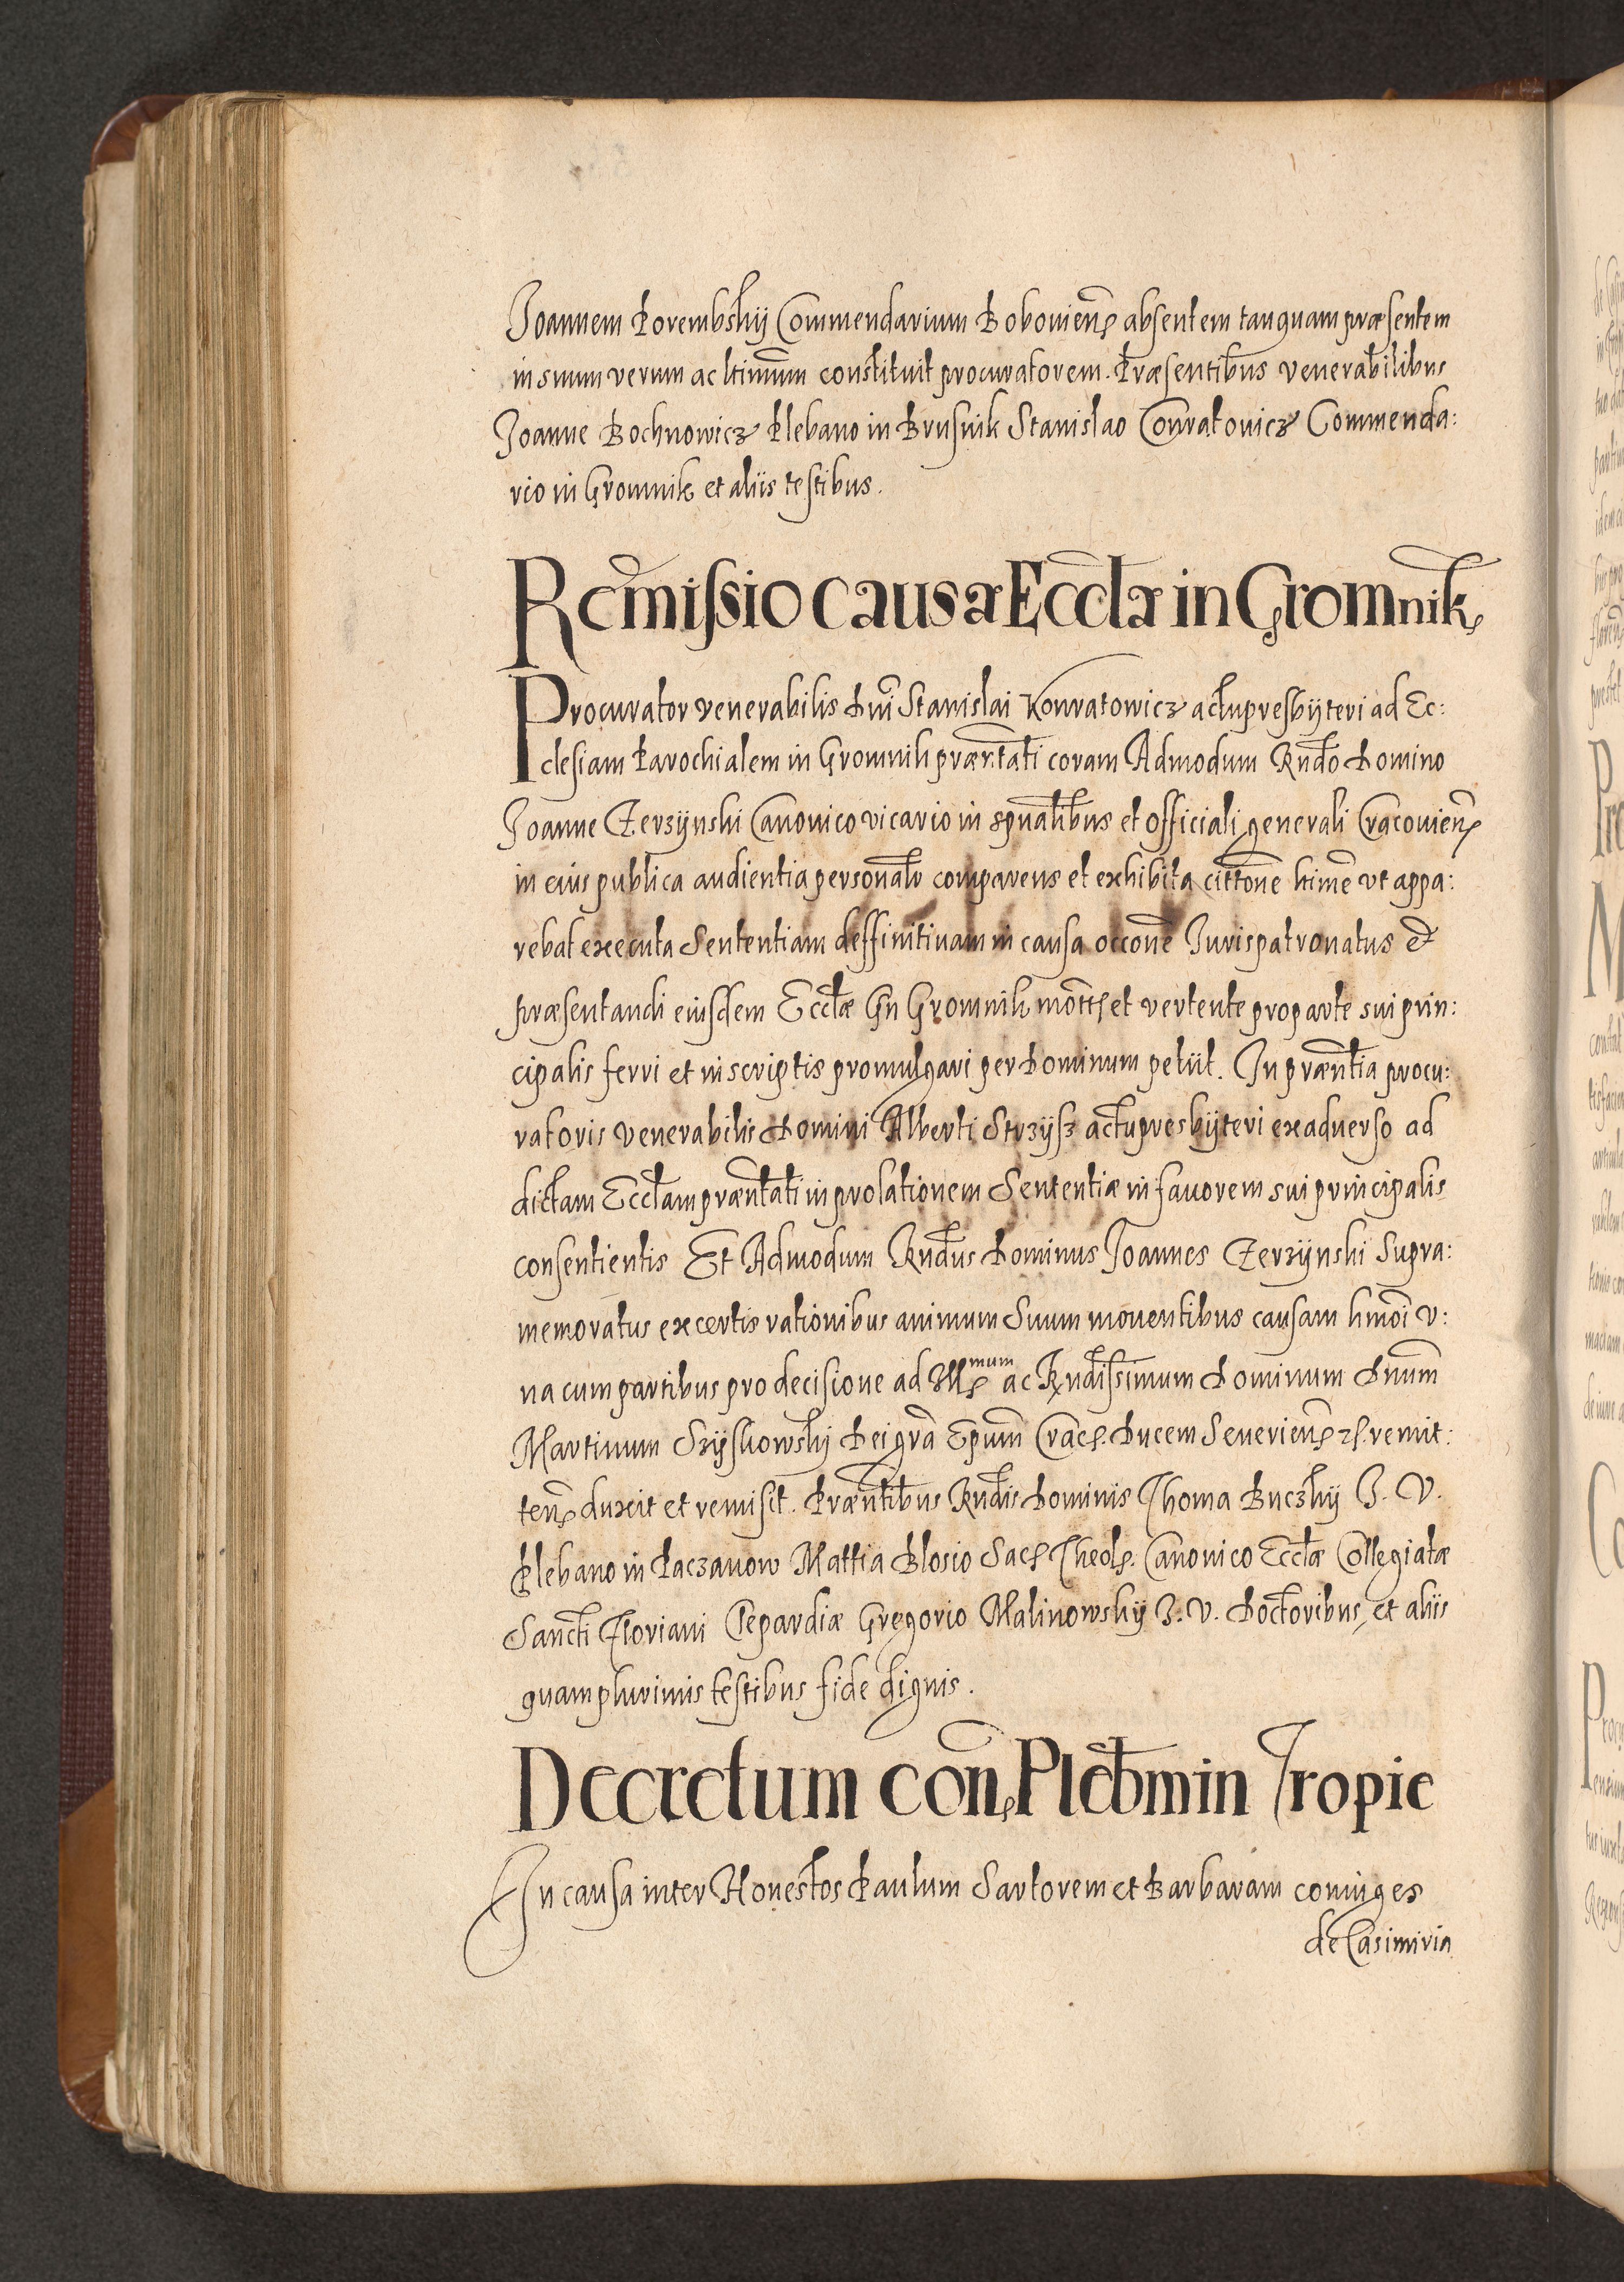 Joannem Porembskij Commendarium Bobouien̄ absentem tanquam præsentem
in suum verum ac ltimūm constituit procuratorem. Præsentibus venerabilibus
Joanne Bochnowicz Plebano in Brusnik Stanislao Conratouicz Commenda:
rio in Gromnik et aliis testibus.
Remissio causæ Eccłæ in Gromnik
Procurator venerabilis Dnī Stanislai Konratowicz actu presbyteri ad Ec:
clesiam Parochialem in Gromnik præntati coram Admodum Rndo Domino
Joanne Zerzynski Canonico vicario in spualibus et officiali generali Cracouien̄
in eius publica audientia personalr comparens et exhibita cittōne ltimē vt appa:
rebat executa Sententiam deffinitiuam in causa occōne Jurispatronatus et
præsentandi eiusdem Eccłæ in Gromnik mottę et vertente pro parte sui prin:
cipalis ferri et in scriptis promulgari per Dominum petiit. In præntia procu:
ratoris venerabilis Domini Alberti Strzysz actu presbyteri ex aduerso ad
dictam Eccłam præntati in prolationem Sententiæ in fauorem sui principalis
consentientis Et Admodum Rndus Dominus Joannes Zerzynski Supra:
memoratus ex certis rationibus animum Suum mouentibus causam hmōi v:
na cum partibus pro decisione ad Illmum ac Rndissimum Dominum Dnūm
Martinum Szyskowskj Dei gra Epūm Crac. Ducem Seuerien̄ etc. remit:
ten̄ duxit et remisit. Præntibus Rndis Dominis Thoma Buczkij J. V.
Plebano in Paczanow Mattia Blosio Sac. Theol. Canonico Eccłæ Collegiatæ
Sancti Floriani Clepardiæ Gregorio Malinowskij J. V. Doctoribus, et aliis
quam plurimis testibus fide dignis.
Decretum con̄ Plebm in Tropie
In causa inter Honestos Paulum Sartorem et Barbaram coniuges
de Casimiria